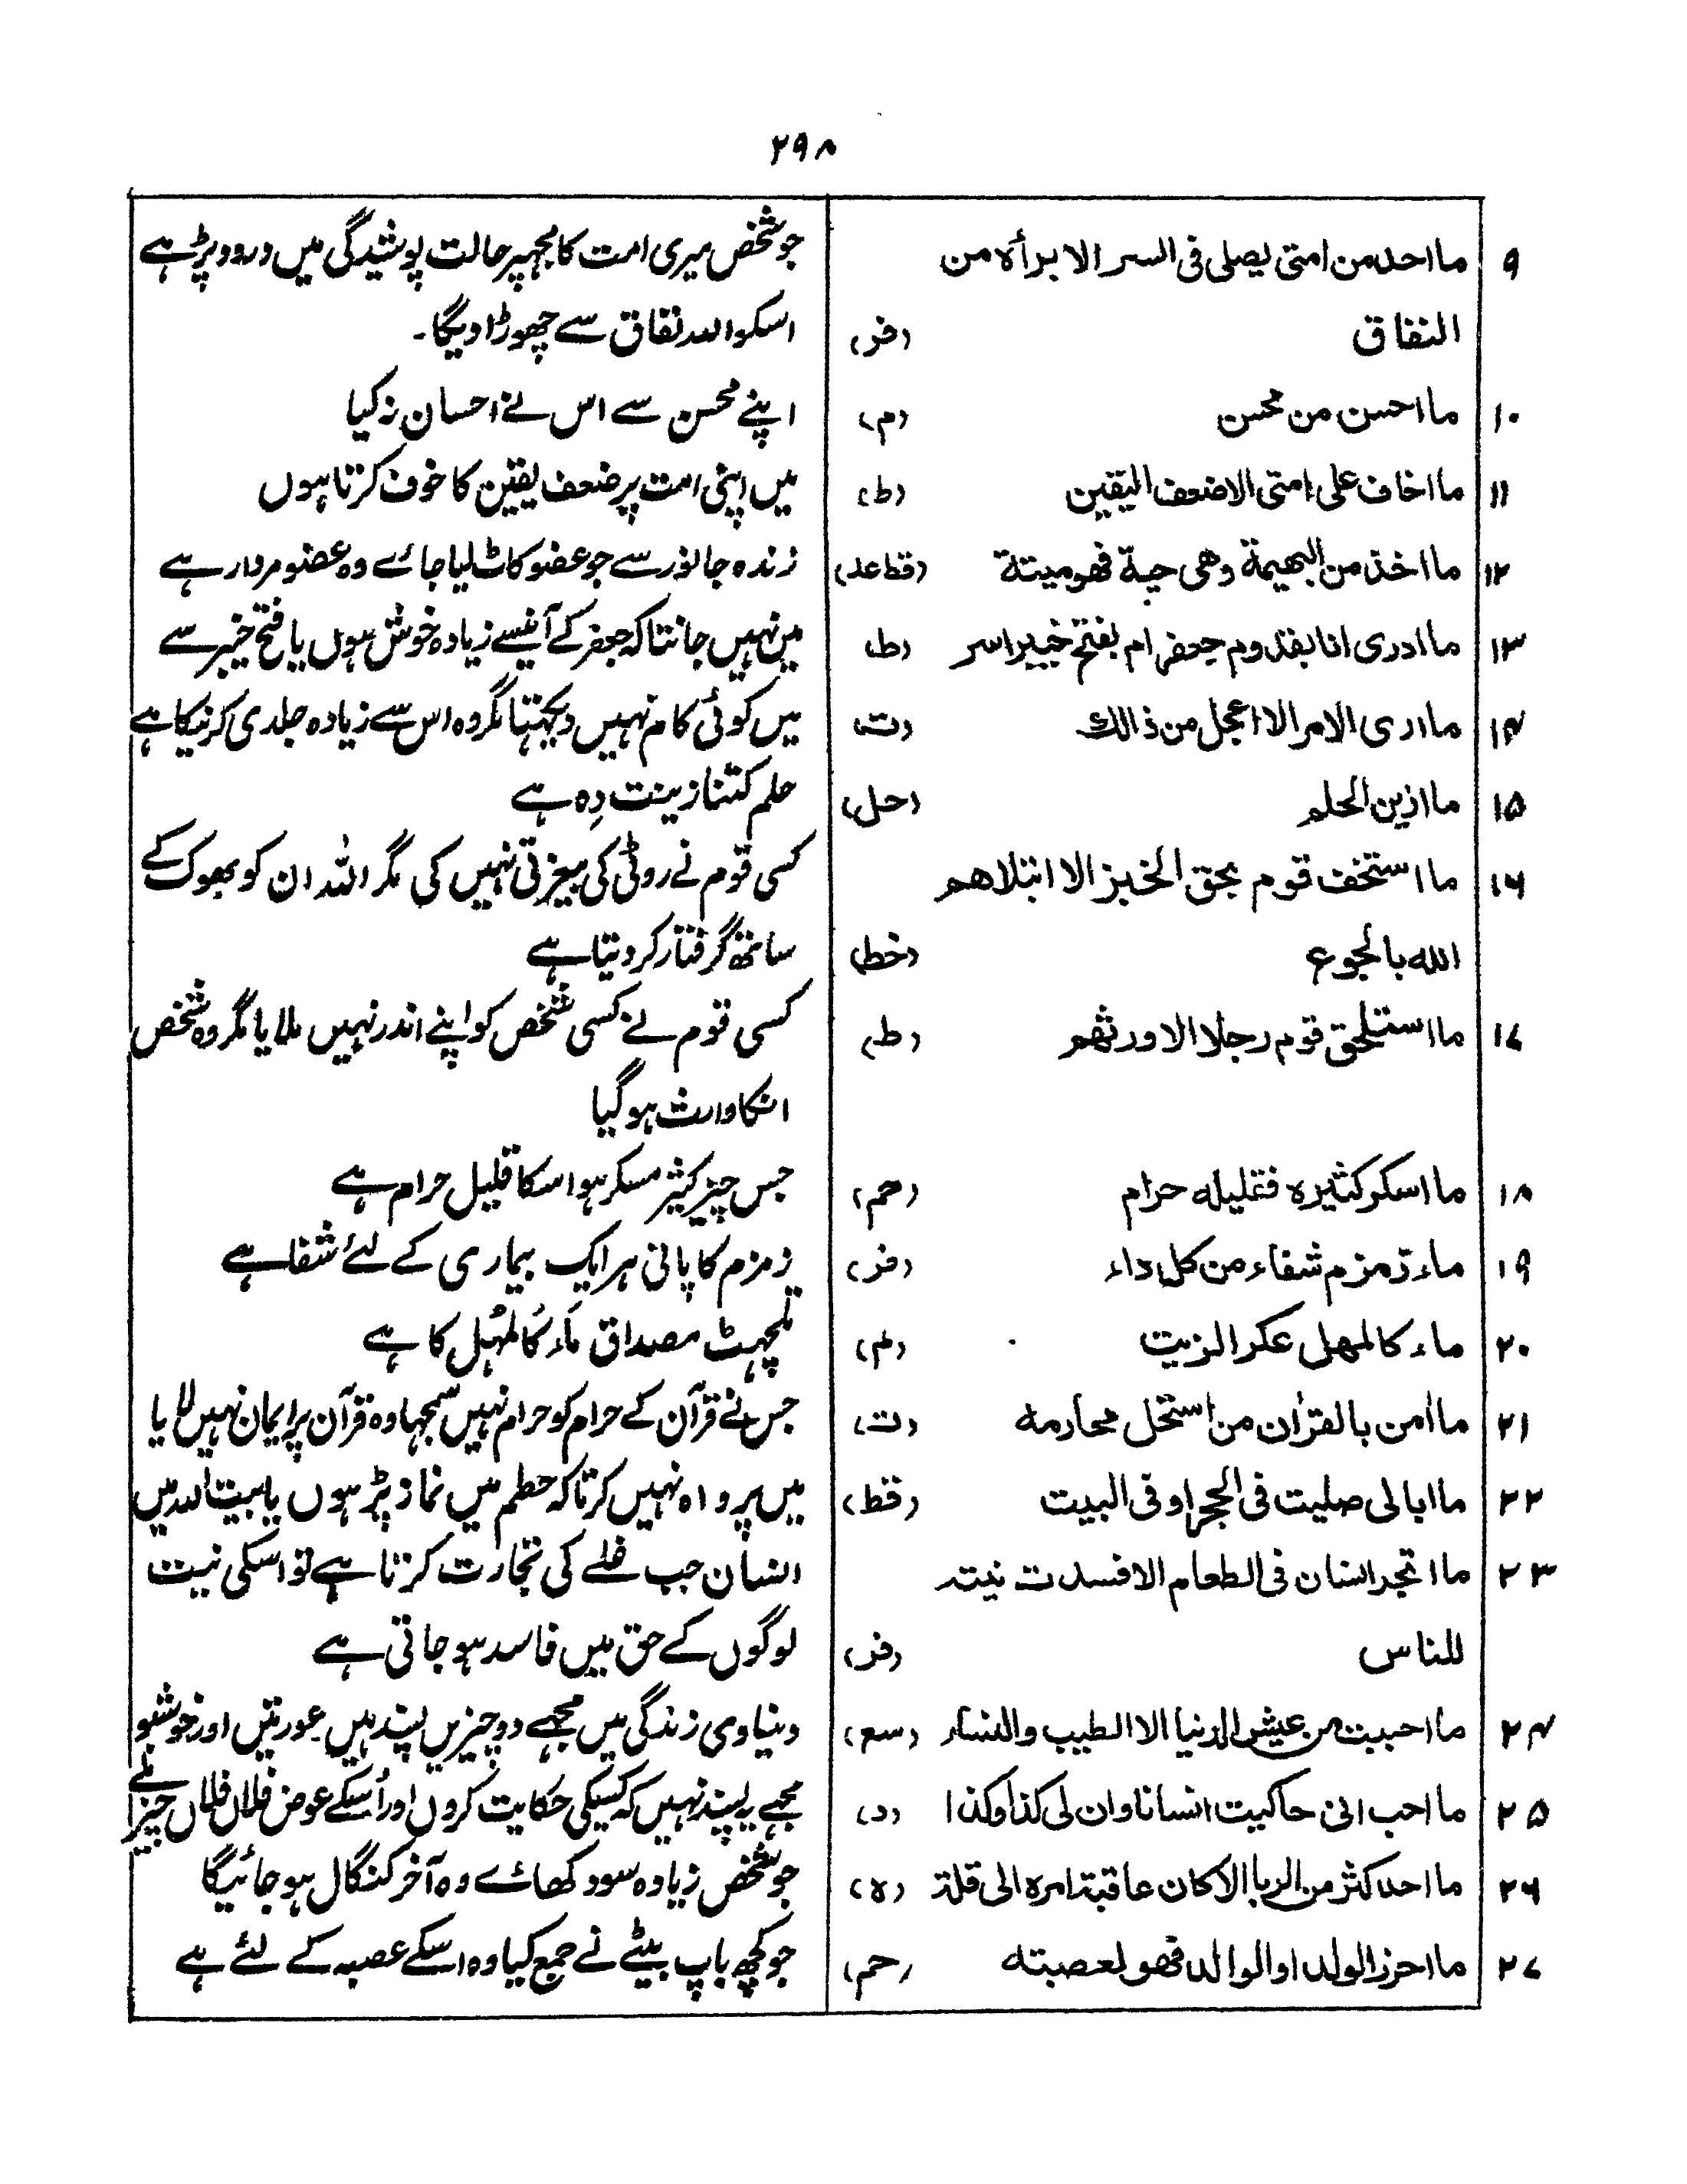 ۲۹۸
۹ ما احد من امتی یصلی فی السر الا برأہ من جو شخص میری امت کا مجہپر حالت پوشیدگی میں درود پڑہے
النفاق (فر) اسکو اللہ نفاق سے چھوڑا دیگا۔
۱۰ ما احسن من محسن (م) اپنے محسن سے اس نے احسان نہ کیا
۱۱ ما اخاف علی امتی الا ضعف الیقین (ط) میں اپنی امت پر ضعف یقین کا خوف کرتا ہوں
۱۲ ما اخذ من البھیمۃ وھی حیۃ فھو میتۃ (قط عد) زندہ جانور سے جو عضو کاٹ لیا جائے وہ عضو مردار ہے
۱۳ ما ادری انا بقدوم جعفر ام بفتح خیبر اسر (ط) میں نہیں جانتا کہ جعفر کے آنیسے زیادہ خوش ہوں یا فتح خیبر سے
۱۴ ما اری الامر الا اعجل من ذالک (ت) میں کوئی کام نہیں دیکہتا مگر وہ اس سے زیادہ جلدی کرنیکا ہے
۱۵ ما ازین الحلم (حل) حلم کتنا زینت دِہ ہے
۱۶ ما استخف قوم بحق الخبز الا ابتلاھم کسی قوم نے روٹی کی بیعزتی نہیں کی مگر اللہ ان کو بھوک کے
اللہ بالجوع (خط) ساتھ گرفتار کر دیتا ہے
۱۷ ما استلحق قوم رجلا الا ورثھم (ط) کسی قوم نے کسی شخص کو اپنے اندر نہیں ملایا مگر وہ شخص
انکا وارث ہو گیا
۱۸ ما اسکر کثیرہ فقلیلہ حرام (حم) جس چیز کثیر مسکر ہو اسکا قلیل حرام ہے
۱۹ ماء زمزم شفاء من کل داء (فر) زمزم کا پانی ہر ایک بیماری کے لئے شفا ہے
۲۰ ماء کالمھل عکر الزیت (م) تلچہٹ مصداق مَاء کَالمُہل کا ہے
۲۱ ما امن بالقراٰن من استحل محارمہ (ت) جس نے قرآن کے حرام کو حرام نہیں سمجہا وہ قرآن پر ایمان نہیں لایا
۲۲ ما ابالی صلیت فی الحجر او فی البیت (قط) میں پرواہ نہیں کرتا کہ حطم میں نماز پڑہوں یا بیت اللہ میں
۲۳ ما اتجر انسان فی الطعام الا فسدت نیتہ انسان جب غلے کی تجارت کرتا ہے تو اسکی نیت
للناس (فر) لوگوں کے حق میں فاسد ہو جاتی ہے
۲۴ ما احببت من عیش الدنیا الا الطیب والنساء (سع) دنیاوی زندگی میں مجہے دو چیزیں پسند ہیں عورتیں اور خوشبو
۲۵ ما احب انی حاکیت انسانا وان لی کذا وکذا (د) مجہے یہ پسند نہیں کہ کسیکی حکایت کروں اور اُسکے عوض فلاں فلاں چیز ملے
۲۶ ما احد کثر من الربا الا کان عاقبۃ امرہ الی قلۃ (ہ) جو شخص زیادہ سود کھائے وہ آخر کنگال ہو جائیگا
۲۷ ما احرز الولد او الوالد فھو لعصبتہ (حم) جو کچھ باپ بیٹے نے جمع کیا وہ اسکے عصبہ کے لئے ہے